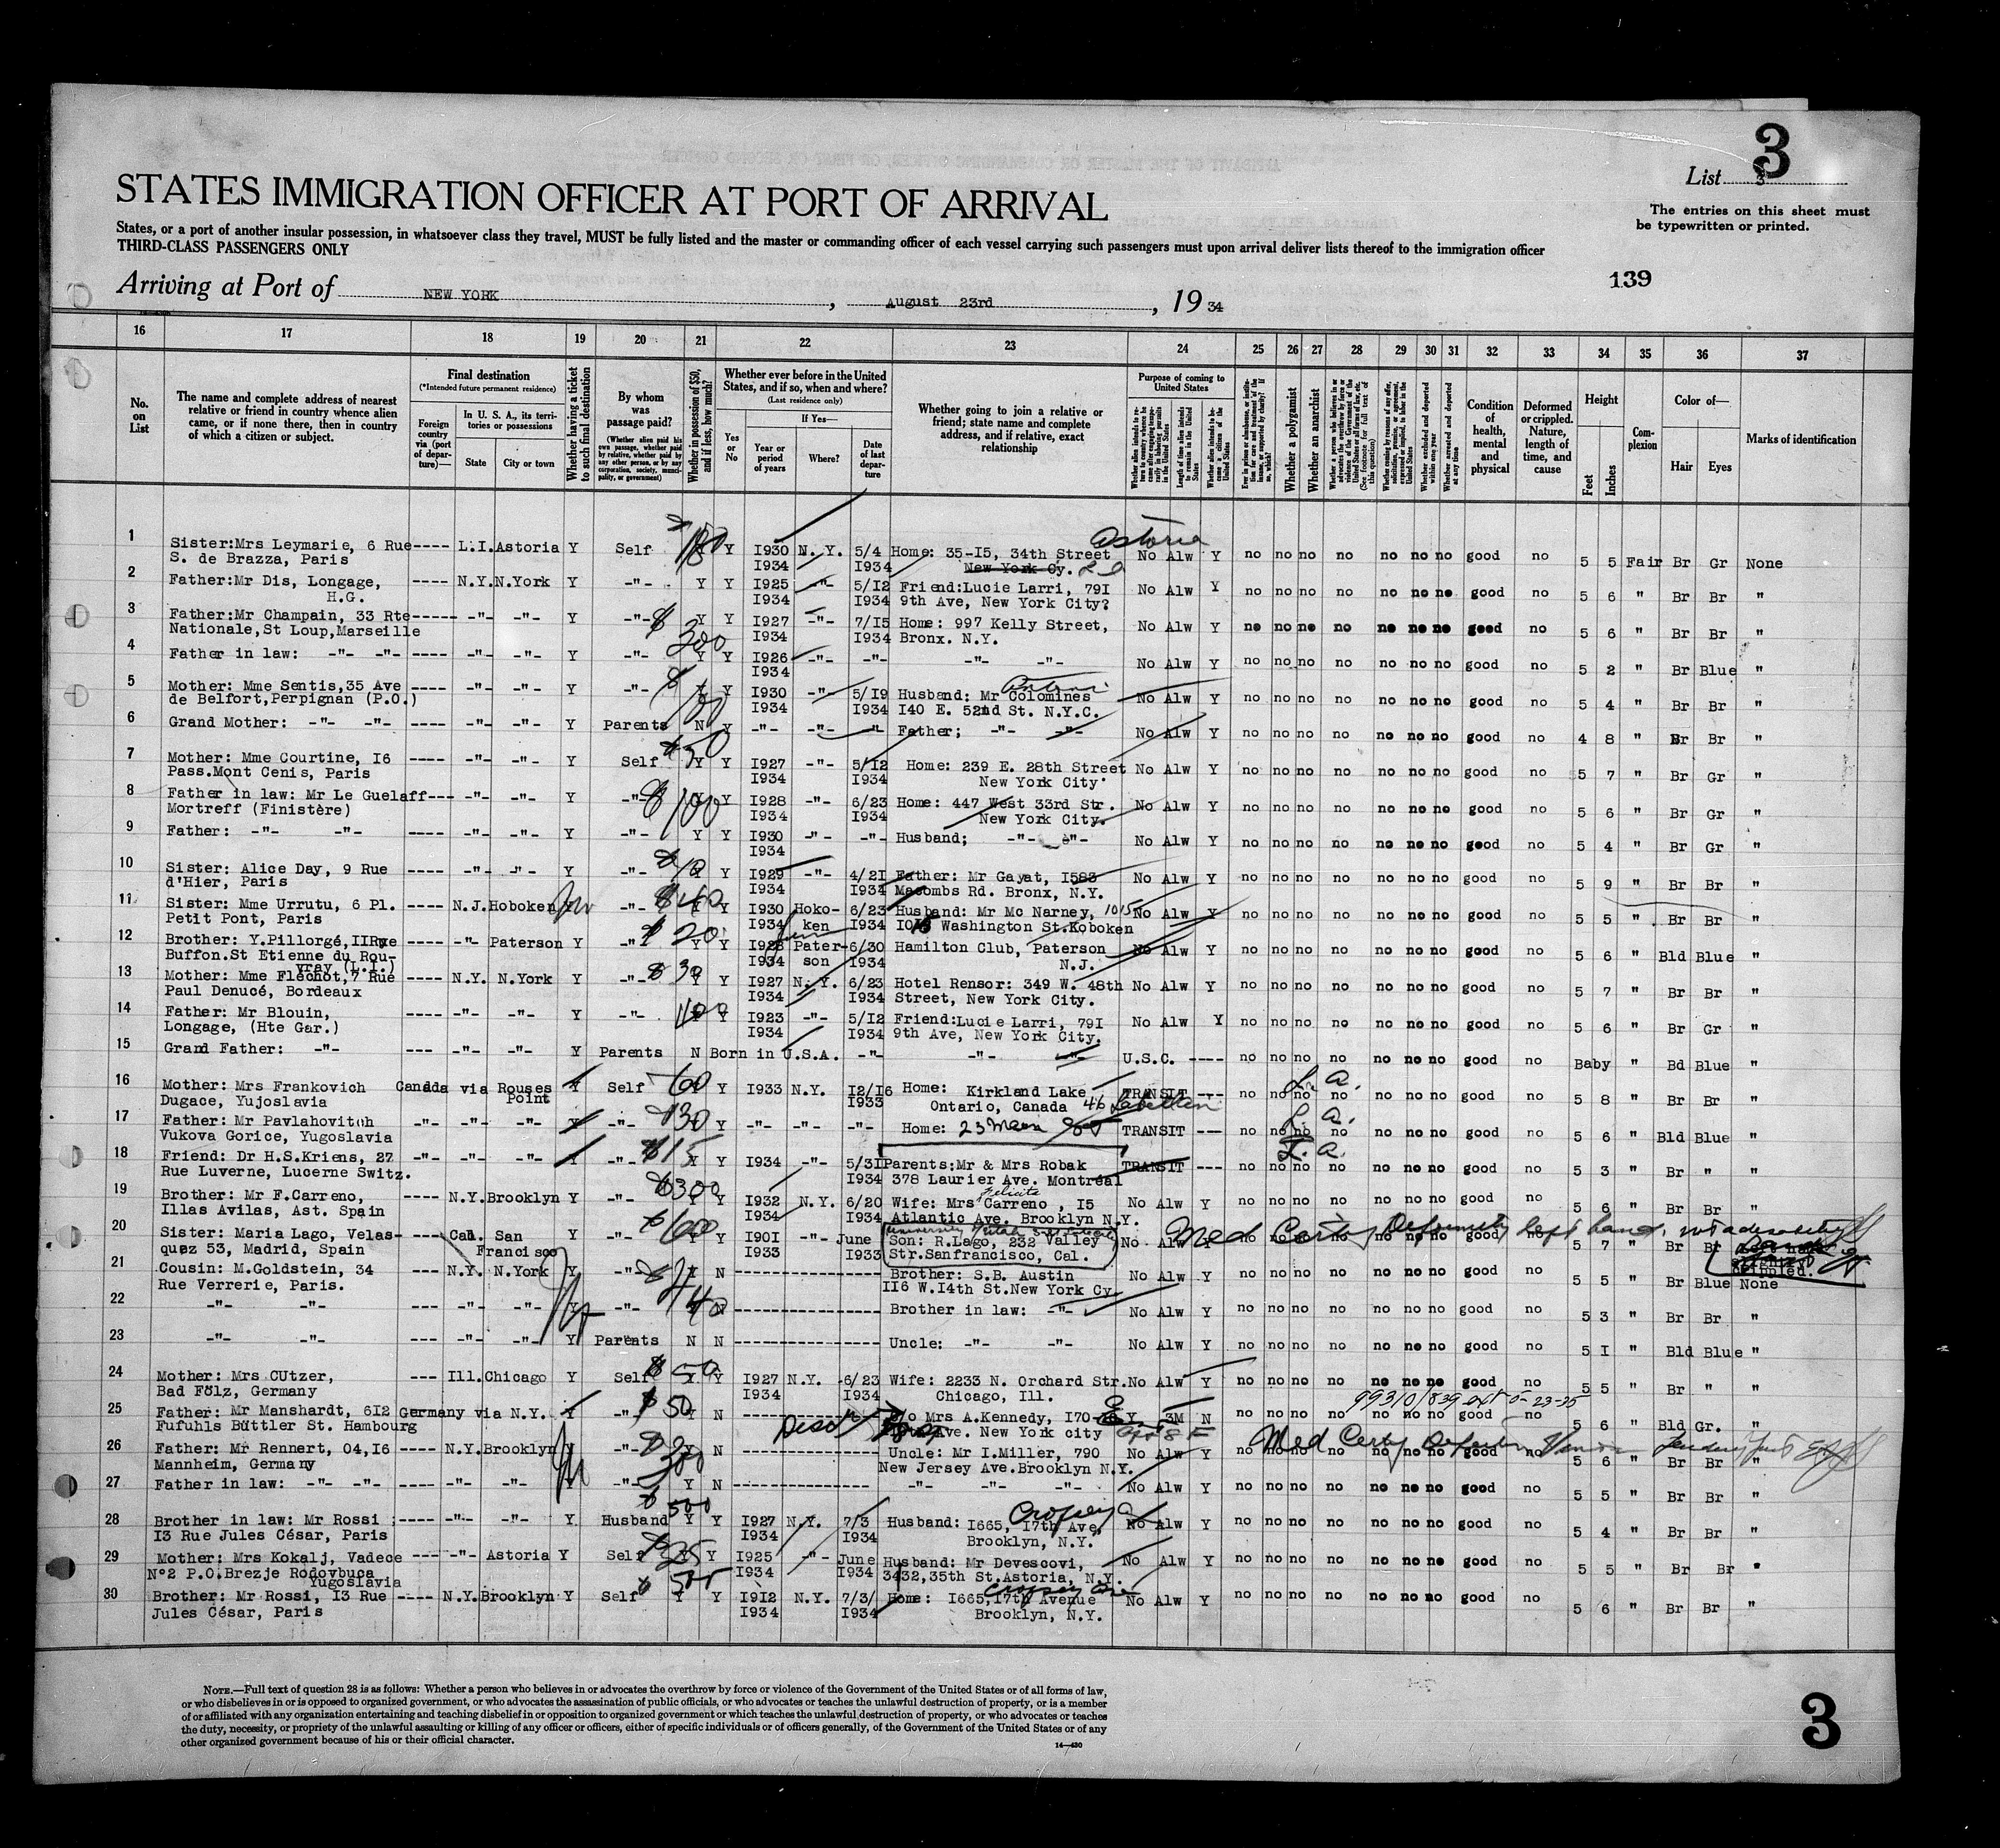 3
List 3
STATES IMMIGRATION OFFICER AT PORT OF ARRIVAL
The entries on this sheet must
be typewritten or printed.
States, or a port of another insular possession, in whatsoever class they travel, MUST be fully listed and the master or commanding officer of each vessel carrying such passengers must upon arrival deliver lists thereof to the immigration officer
THIRD-CLASS PASSENGERS ONLY
139
Arriving at Port of NEW YORK, August 23rd, 19 34
16 17 18 19 20 21 22 23 24 25 26 27 28 29 30 31 32 33 34 35 36 37
No. on List
The name and complete address of nearest relative or friend in country whence alien came, or if none there, then in country of which a citizen or subject.
Final destination
(*Intended future permanent residence)
Foreign country via (port of departure)—
In U. S. A., its territories or possessions
State
City or town
Whether having a ticket to such final destination
By whom was passage paid?
(Whether alien paid his own passage, whether paid by relative, whether paid by any other person, or by any corporation, society, municipality, or government)
Whether in possession of $50, and if less, how much?
Whether ever before in the United States, and if so, when and where?
(Last residence only)
Yes or No
If Yes—
Year or period of years
Where?
Date of last departure
Whether going to join a relative or friend; state name and complete address, and if relative, exact relationship
Purpose of coming to United States
Whether a polygamist
Whether an anarchist
Condition of health, mental and physical
Deformed or crippled. Nature, length of time, and cause
Height
Feet
Inches
Complexion
Color of—
Hair
Eyes
Marks of identification
1 Sister:Mrs Leymarie, 6 Rue ---- L.I. Astoria Y Self Y I930 N. Y. 5/4 Home: 35-I5, 34th Street Astoria No Alw Y no no no no no no no good no 5 5 Fair Br Gr None
S. de Brazza, Paris I934 I934 New York Cy.
2 Father:Mr Dis, Longage, ---- N.Y. N.York Y -"- Y Y I925 -"- 5/I2 Friend:Lucie Larri, 79I No Alw Y no no no no no no no good no 5 6 " Br Br "
H.G. I934 I934 9th Ave, New York City?
3 Father:Mr Champain, 33 Rte ---- -"- -"- Y -"- $ 300 Y Y I927 -"- 7/I5 Home: 997 Kelly Street, No Alw Y no no no no no no no good no 5 6 " Br Br "
Nationale,St Loup,Marseille I934 I934 Bronx. N.Y.
4 Father in law: -"- -"- ---- -"- -"- Y -"- Y Y I926 -"- -"- -"- -"- No Alw Y no no no no no no no good no 5 2 " Br Blue "
I934
5 Mother: Mme Sentis,35 Ave ---- -"- -"- Y -"- Y Y I930 -"- 5/I9 Husband: Mr Colomines No Alw Y no no no no no no no good no 5 4 " Br Br "
de Belfort,Perpignan (P.O.) I934 I934 I40 E. 52nd St. N.Y.C.
6 Grand Mother: -"- -"- ---- -"- -"- Y Parents N Y -"- -"- -"- Father; -"- -"- No Alw Y no no no no no no no good no 4 8 " Br Br "
7 Mother: Mme Courtine, I6 ---- -"- -"- Y Self $ 50 Y Y I927 -"- 5/I2 Home: 239 E. 28th Street No Alw Y no no no no no no no good no 5 7 " Br Gr "
Pass.Mont Cenis, Paris I934 I934 New York City
8 Father in law: Mr Le Guelaff --- -"- -"- Y -"- $ 100 Y I928 -"- 6/23 Home: 447 West 33rd Str. No Alw Y no no no no no no no good no 5 6 " Br Gr "
Mortreff (Finistère) I934 I934 New York City.
9 Father: -"- -"- ---- -"- -"- Y -"- Y Y I930 -"- -"- Husband; -"- -"- No Alw Y no no no no no no no good no 5 4 " Br Gr "
I934
10 Sister: Alice Day, 9 Rue ---- -"- -"- Y -"- Y I929 -"- 4/2I Father: Mr Gayat, I583 No Alw Y no no no no no no no good no 5 9 " Br Br "
d'Hier, Paris I934 I934 Macombs Rd. Bronx, N.Y.
11 Sister: Mme Urrutu, 6 Pl. ---- N.J. Hoboken -"- $ 40 Y I930 Hoko- 6/23 Husband: Mr Mc Narney, 1015 No Alw Y no no no no no no no good no 5 5 " Br Br "
Petit Pont, Paris I934 ken I934 Washington St.Koboken
12 Brother: Y.Pillorgé,II Rue ---- -"- Paterson Y -"- $ 20 Y Y I928 Pater- 6/30 Hamilton Club, Paterson No Alw Y no no no no no no no good no 5 6 " Bld Blue "
Buffon.St Etienne du Rou- I934 son I934 N.J.
vray (L.I.)
13 Mother: Mme Fléchot,7 Rue ---- N.Y. N.York Y -"- $ 30 Y I927 N.Y. 6/23 Hotel Rensor: 349 W. 48th No Alw Y no no no no no no no good no 5 7 " Br Br "
Paul Denucé, Bordeaux I934 I934 Street, New York City.
14 Father: Mr Blouin, ---- -"- -"- Y -"- 100 Y I923 -"- 5/I2 Friend:Lucie Larri, 79I No Alw Y no no no no no no no good no 5 6 " Br Gr "
Longage, (Hte Gar.) I934 I934 9th Ave, New York City.
15 Grand Father: -"- --- -"- -"- Y Parents N Born in U.S.A. -"- -"- -"- U.S.C. ---- no no no no no no no good no Baby " Bd Blue "
16 Mother: Mrs Frankovich Canada via Rouses Point Y Self 60 Y I933 N.Y. I2/I6 Home: Kirkland Lake TRANSIT --- no no no no no no no good no 5 8 " Br Br "
Dugace, Yujoslavia I933 Ontario, Canada 46 L. A.
17 Father: Mr Pavlahovitch -"- -"- -"- Y -"- $ 30 Y -"- -"- -"- Home: 23 Main St TRANSIT --- L. A. no no no no no no no good no 5 6 " Bld Blue "
Vukova Gorice, Yugoslavia
18 Friend: Dr H.S.Kriens, 27 -"- -"- -"- Y -"- $15 Y Y I934 -"- 5/3I Parents:Mr & Mrs Robak TRANSIT --- L. A. no no no no no no no good no 5 3 " Br " "
Rue Luverne, Lucerne Switz. I934 378 Laurier Ave. Montréal
19 Brother: Mr F.Carreno, ---- N.Y. Brooklyn Y -"- $300 Y I932 N.Y. 6/20 Wife: Mrs Felicita Carreno , I5 No Alw Y no no no no no no no good no 5 6 " Br Br "
Illas Avilas, Ast. Spain I934 I934 Atlantic Ave. Brooklyn N.Y.
20 Sister: Maria Lago, Velas- ---- Cal. San Francisco Y -"- $ 600 Y Y I90I -"- June Son: R.Lago, 232 Valley No Alw Y Med Certy Deformity left hand, no no no no no no no good no 5 7 " Br Br
quez 53, Madrid, Spain I933 I933 Str.Sanfrancisco, Cal. crippled.
21 Cousin: M.Goldstein, 34 ---- N.Y. N.York Y -"- Y N ---------------- Brother: S.B. Austin No Alw Y no no no no no no no good no 5 5 " Br Blue None
Rue Verrerie, Paris. II6 W.I4th St.New York Cy.
22 -"- -"- --- -"- -"- Y -"- N ---------------- Brother in law: -"- No Alw Y no no no no no no no good no 5 3 " Br Br "
23 -"- -"- --- -"- -"- Y Parents N N ---------------- Uncle: -"- -"- No Alw Y no no no no no no no good no 5 I " Bld Blue "
24 Mother: Mrs CUtzer, --- Ill. Chicago Y Self $ 50 Y Y I927 N.Y. 6/23 Wife: 2233 N. Orchard Str. No Alw Y no no no no no no no good no 5 5 " Br " "
Bad Fölz, Germany I934 I934 Chicago, Ill.
25 Father: Mr Manshardt, 6I2 Germany via N.Y. Y -"- $ 50 Y N ---------- c/o Mrs A.Kennedy, I70 Y 3M N no no no no no no no good no 5 6 " Bld Gr. "
Fufuhls Büttler St. Hambourg Ave. New York city
26 Father: Mr Rennert, 04,I6 ---- N.Y. Brooklyn Y -"- Y N ---------------- Uncle: Mr I.Miller, 790 No Alw Y Med Certy no no no no no no no good no 5 6 " Br Br "
Mannheim, Germany 300 New Jersey Ave.Brooklyn N.Y.
27 Father in law: -"- -"- ---- -"- -"- Y -"- Y N ---------------- -"- -"- -"- No Alw Y no no no no no no no good no 5 5 " Br Br "
28 Brother in law: Mr Rossi ---- -"- -"- Y Husband $ 500 Y Y I927 N.Y. 7/3 Husband: I665, I7th Ave, Cropsey No Alw Y no no no no no no no good no 5 4 " Br Br "
I3 Rue Jules César, Paris I934 I934 Brooklyn, N.Y.
29 Mother: Mrs Kokalj, Vadece --- -"- Astoria Y Self $ 25 Y I925 -"- June Husband: Mr Devescovi, No Alw Y no no no no no no no good no 5 5 " Br Br "
N°2 P.O.Brezje Rodovbuca I934 I934 3432,35th St.Astoria, N.Y.
Yugoslavia
30 Brother: Mr Rossi, I3 Rue ---- N.Y. Brooklyn Y Self $ Y Y I9I2 N.Y. 7/3/ Home: I665,I7th Avenue Cropsey Ave No Alw Y no no no no no no no good no 5 6 " Br Br "
Jules César, Paris I934 I934 Brooklyn, N.Y.
NOTE.—Full text of question 28 is as follows: Whether a person who believes in or advocates the overthrow by force or violence of the Government of the United States or of all forms of law,
or who disbelieves in or is opposed to organized government, or who advocates the assassination of public officials, or who advocates or teaches the unlawful destruction of property, or is a member
of or affiliated with any organization entertaining and teaching disbelief in or opposition to organized government or which teaches the unlawful destruction of property, or who advocates or teaches
the duty, necessity, or propriety of the unlawful assaulting or killing of any officer or officers, either of specific individuals or of officers generally, of the Government of the United States or of any
other organized government because of his or their official character.
14—430
3